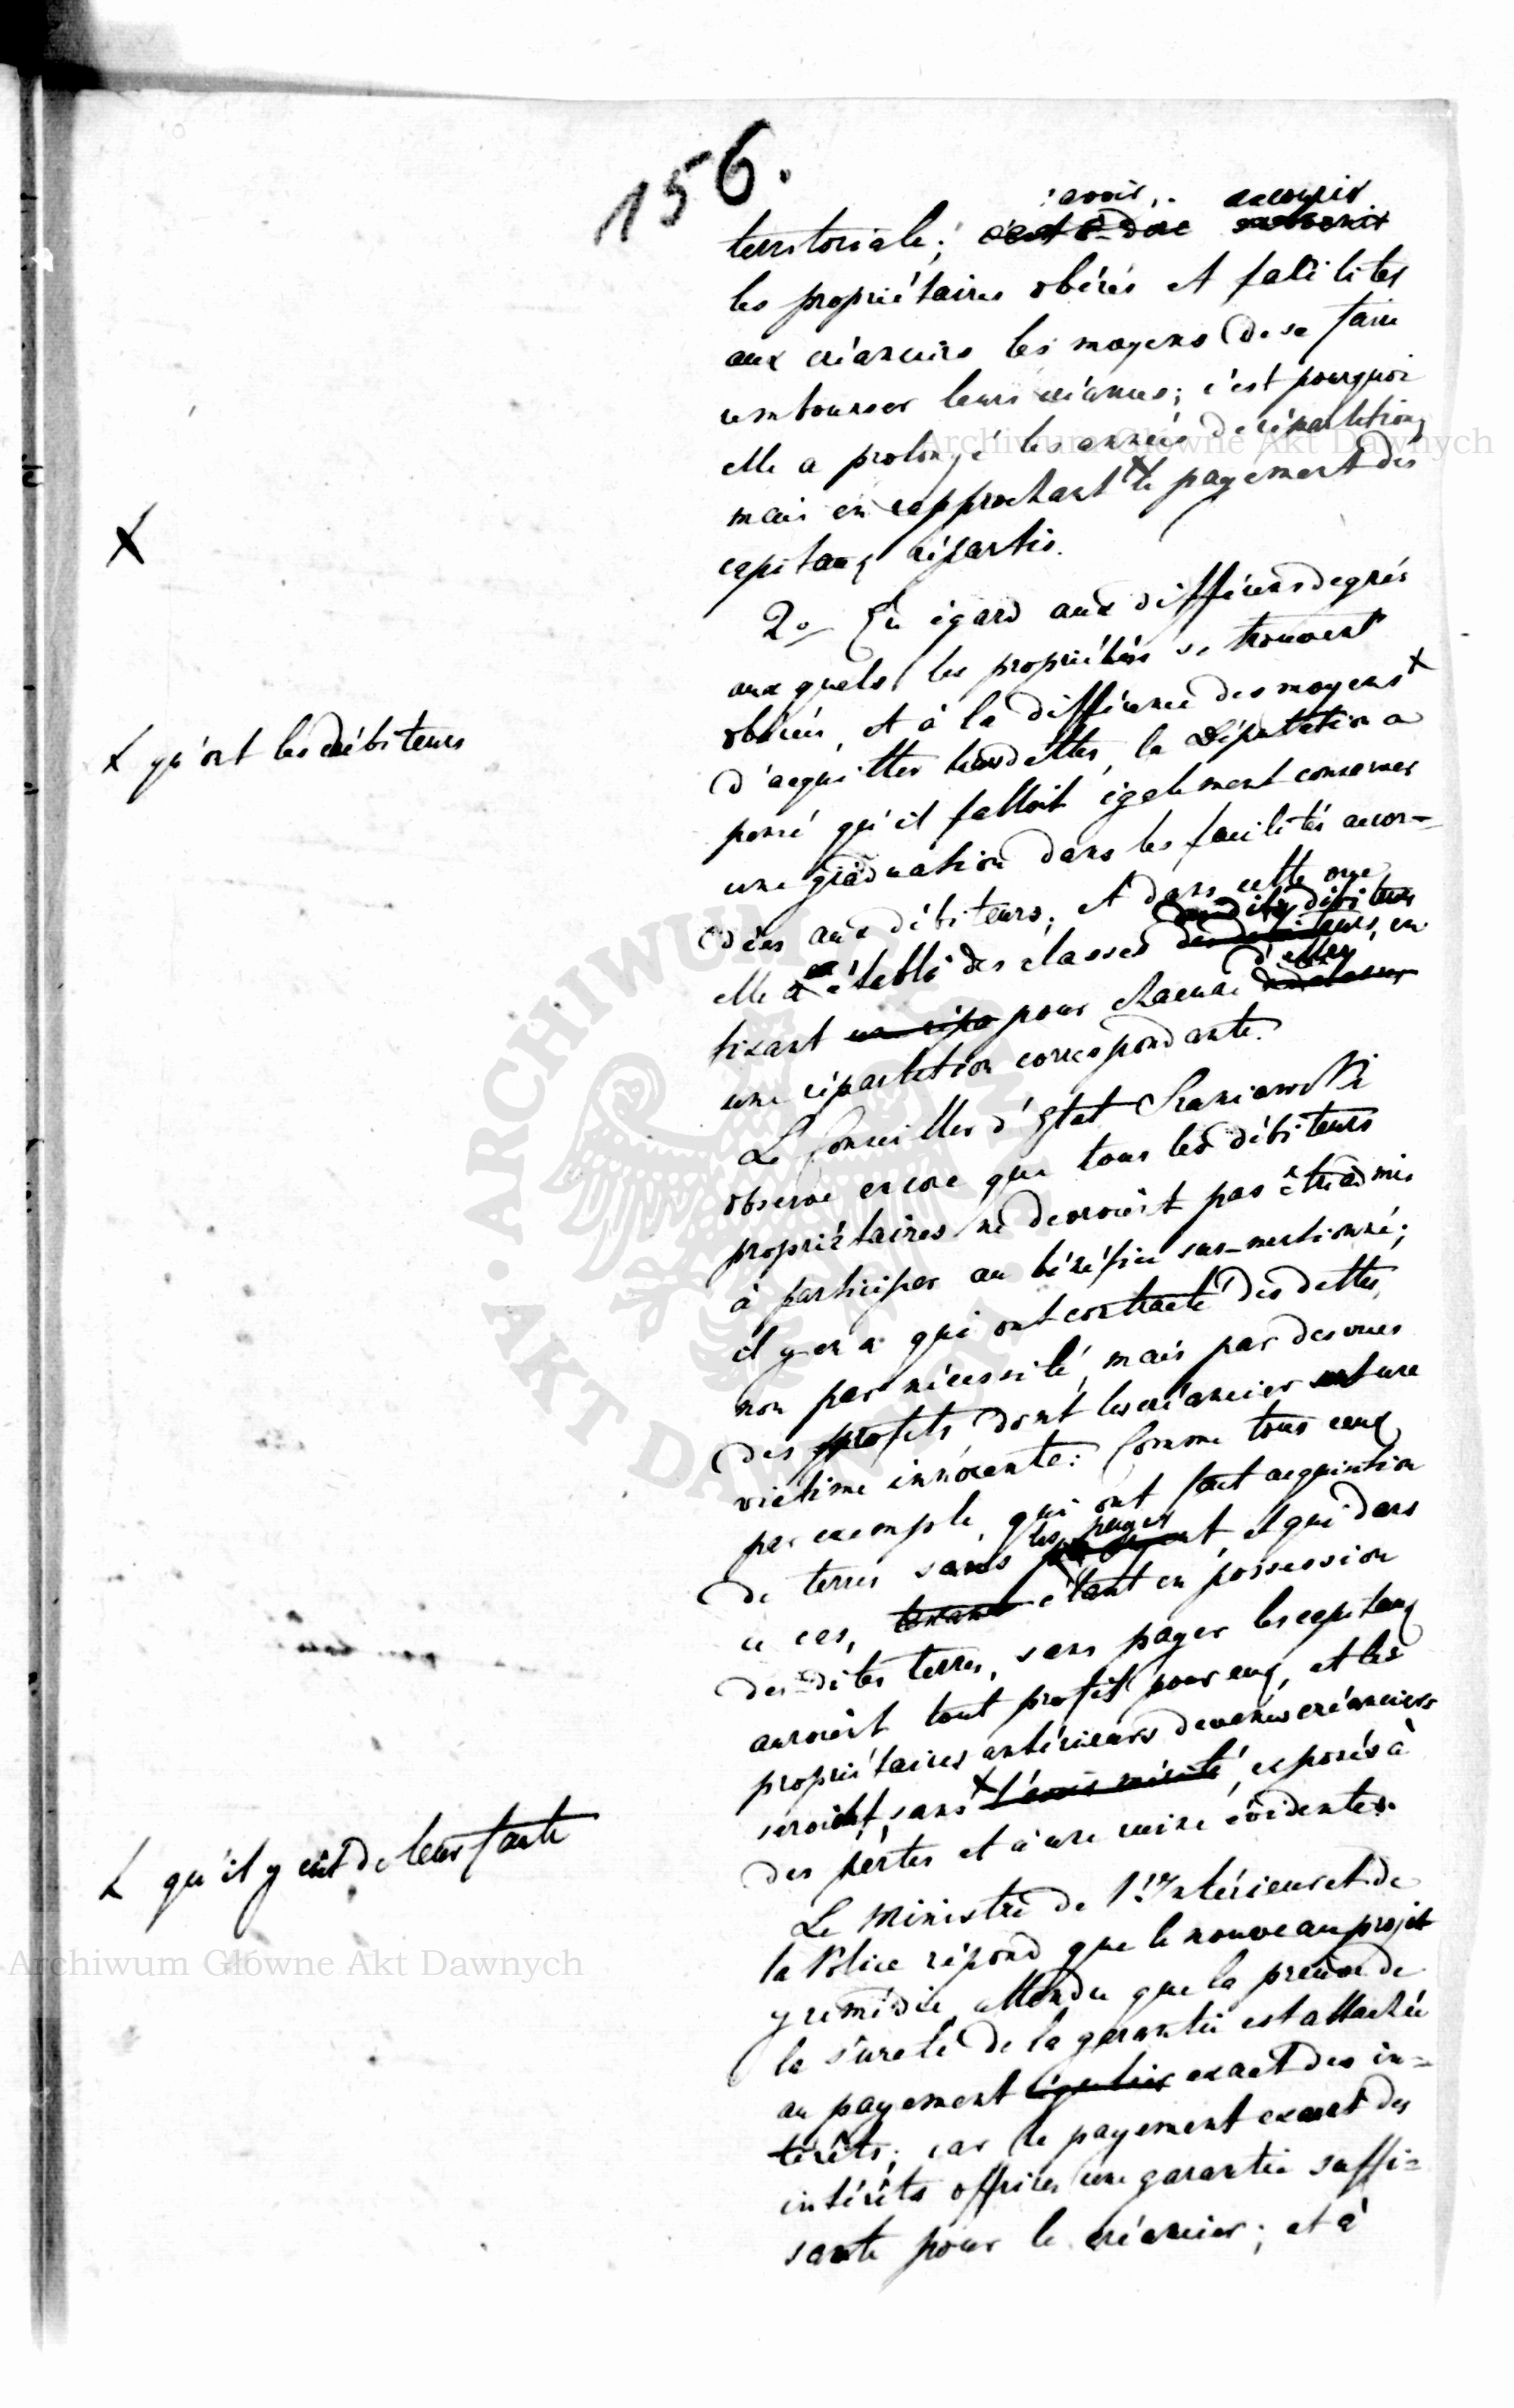 156.
savoir, secourir
territoriale; c'est-à-dire
les propriétaires obérés et faciliter
aux créanciers les moyens de se faire
rembourser leurs créances; c'est pourquoi
elle a prolongé les années de répartition,
mais en rapprochant le payement des
capitaux répartis.
X
2o/ Eu égard aux différens degrés
aux quels les propriétaires se trouvent
obérés, et à la différence des moyens X
X qu'ont les débiteurs
d'acquitter leurs dettes, la Députation a
pensé qu'il falloit également conserver
une graduation dans les facilités accor-
dées aux débiteurs; et dans cette vue
desdits débiteurs
elle a établi des classes des débiteurs, en
d'elles
fixant une répa pour chacune
une répartition correspondante.
Le Conseiller d'Etat Staniawski
observe encore que tous les débiteurs
propriétaires ne devroient pas être admis
à participer au bénéfice sus-mentionné;
il y en a qui ont contracté des dettes,
non par nécessité, mais par des vues
des profits dont les créancier une
victime innocente: Comme tous ceux
par exemple, qui ont fait acquisition
les payer
de terres sans et qui dans
ce cas, étant en possession
des-dites terres, sans payer les capitaux
auroient tout profit pour eux, et les
propriétaires antérieurs devenus créanciers
seroient, sans X l'avoir mérité, exposés à
X qu'il y eût de leur faute
des pertes et à une ruine évidente.
Le Ministre de l'Intérieur et de
la Police répond que le nouveau projet
y remédie, attendu que la preuve de
la sûreté de la garantie est attachée
au payement régulier exact des in=
térêts; car le payement exact des
intérêts offrira une garantie suffi=
sante pour le créancier; et à
Archiwum Główne Akt Dawnych
Archiwum Główne Akt Dawnych
ARCHIWUM GŁÓWNE AKT DAWNYCH